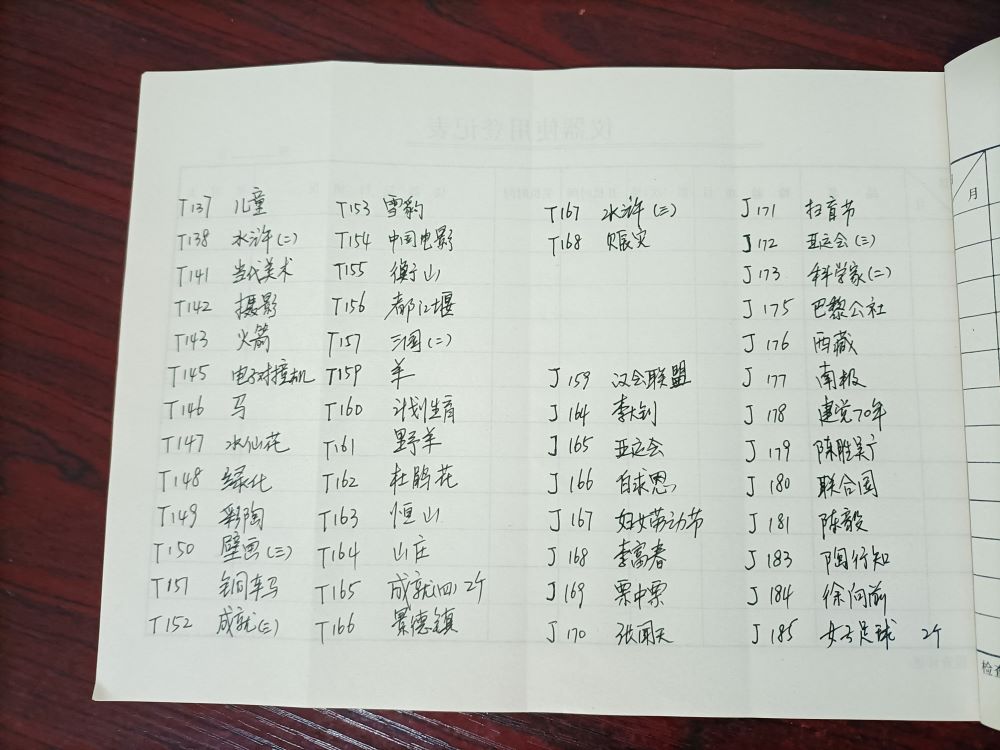 T137 儿童
T138 水浒(二)
T141 当代美术
T142 摄影
T143 火箭
T145 电子对撞机
T146 马
T147 水仙花
T148 绿化
T149 彩陶
T150 壁画(三)
T151 铜车马
T152 成就(三)
T153 雪豹
T154 中国电影
T155 衡山
T156 都江堰
T157 三国(二)
T159 羊
T160 计划生育
T161 野羊
T162 杜鹃花
T163 恒山
T164 山庄
T165 成就(四) 2个
T166 景德镇
T167 水浒(三)
T168 赈灾
J 159 议会联盟
J 164 李大钊
J 165 亚运会
J 166 白求恩
J 167 妇女劳动节
J 168 李富春
J 169 票中票
J 170 张闻天
J 171 扫盲节
J 172 亚运会(三)
J 173 科学家(二)
J 175 巴黎公社
J 176 西藏
J 177 南极
J 178 建党70年
J 179 陈胜吴广
J 180 联合国
J 181 陈毅
J 183 陶行知
J 184 徐向前
J 185 女子足球 2个
月
检查